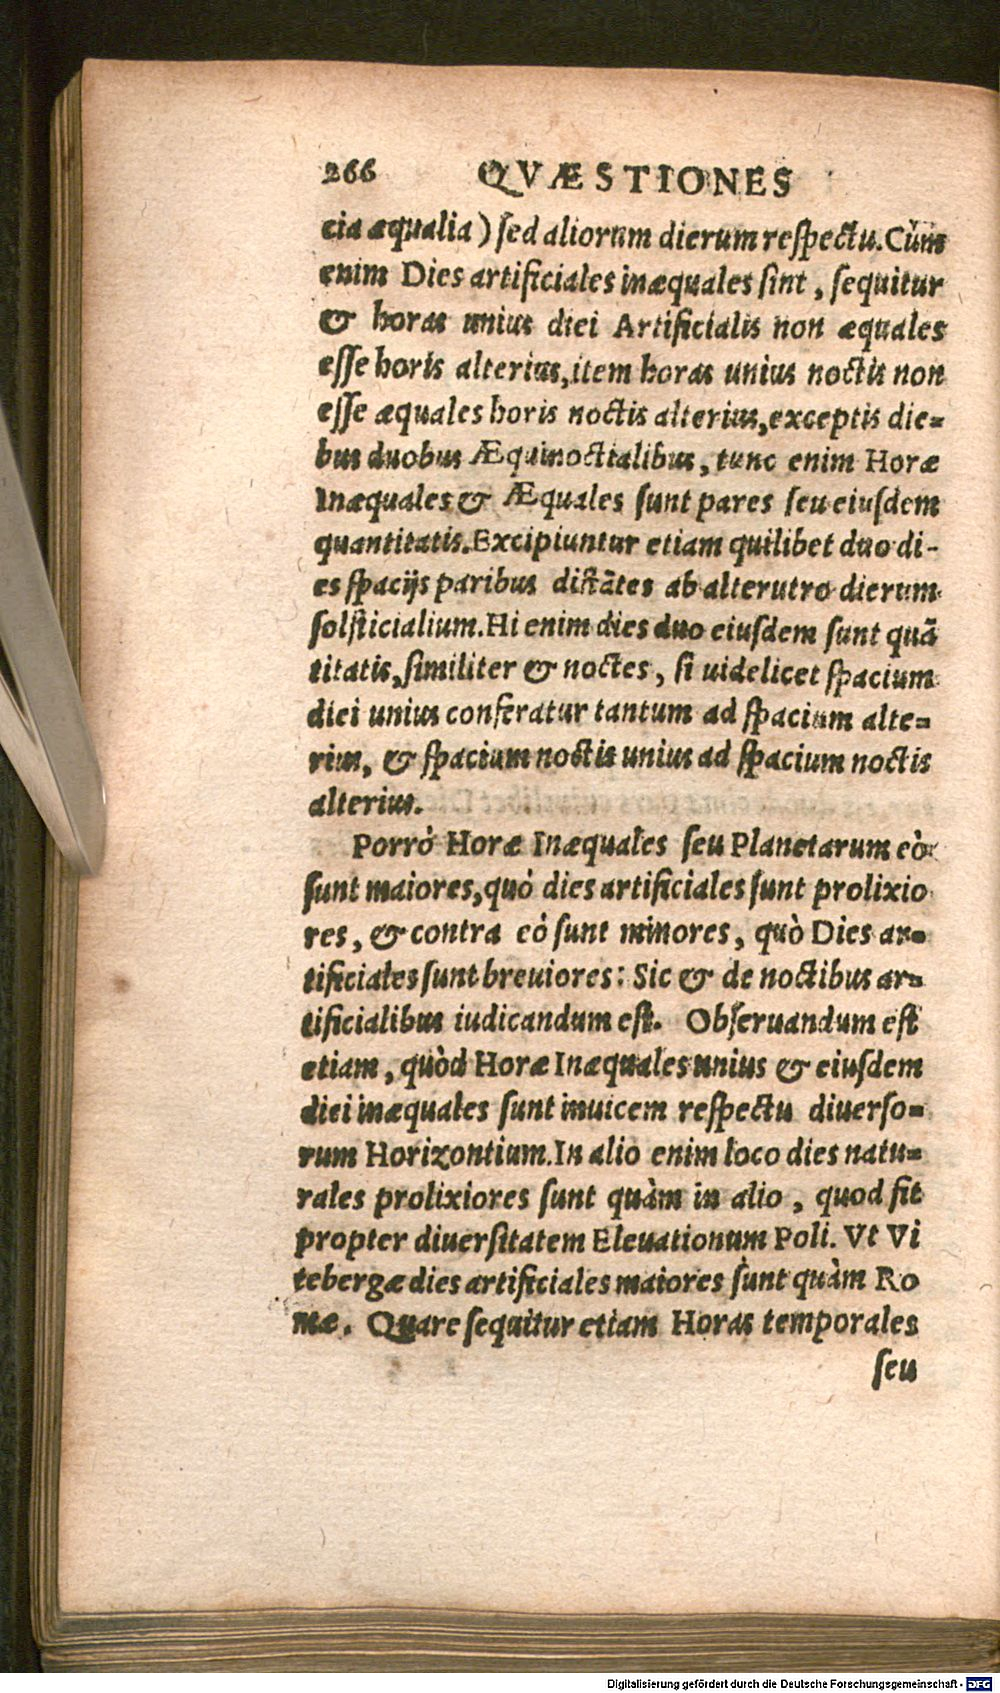 266 QVÆSTIONES
cia æqualia) ſed aliorum dierum reſpectu. Cùm
enim Dies artificiales inæquales ſint, ſequitur
& horas unius diei Artificialis non æquales
eſſe horis alterius, item horas unius noctis non
eſſe æquales horis noctis alterius, exceptis die=
bus duobus Æquinoctialibus, tunc enim Horæ
Inæquales & Æquales ſunt pares ſeu eiuſdem
quantitatis. Excipiuntur etiam quilibet duo di-
es ſpacijs paribus diſtātes ab alterutro dierum
ſolſticialium. Hi enim dies duo eiuſdem ſunt quā
titatis, ſimiliter & noctes, ſi uidelicet ſpacium
diei unius conferatur tantum ad ſpacium alte=
rius, & ſpacium noctis unius ad ſpacium noctis
alterius.
Porró Horæ Inæquales ſeu Planetarum eò
ſunt maiores, quó dies artificiales ſunt prolixio
res, & contra eó ſunt minores, quò Dies ar=
tificiales ſunt breuiores: Sic & de noctibus ar=
tificialibus iudicandum eſt. Obſeruandum eſt
etiam, quòd Horæ Inæquales unius & eiuſdem
diei inæquales ſunt inuicem reſpectu diuerſo=
rum Horizontium. In alio enim loco dies natu=
rales prolixiores ſunt quàm in alio, quod fit
propter diuerſitatem Eleuationum Poli. Vt Vi
tebergæ dies artificiales maiores ſunt quàm Ro
mæ. Quare ſequitur etiam Horas temporales
ſeu
Digitalisierung gefördert durch die Deutsche Forschungsgemeinschaft - DFG